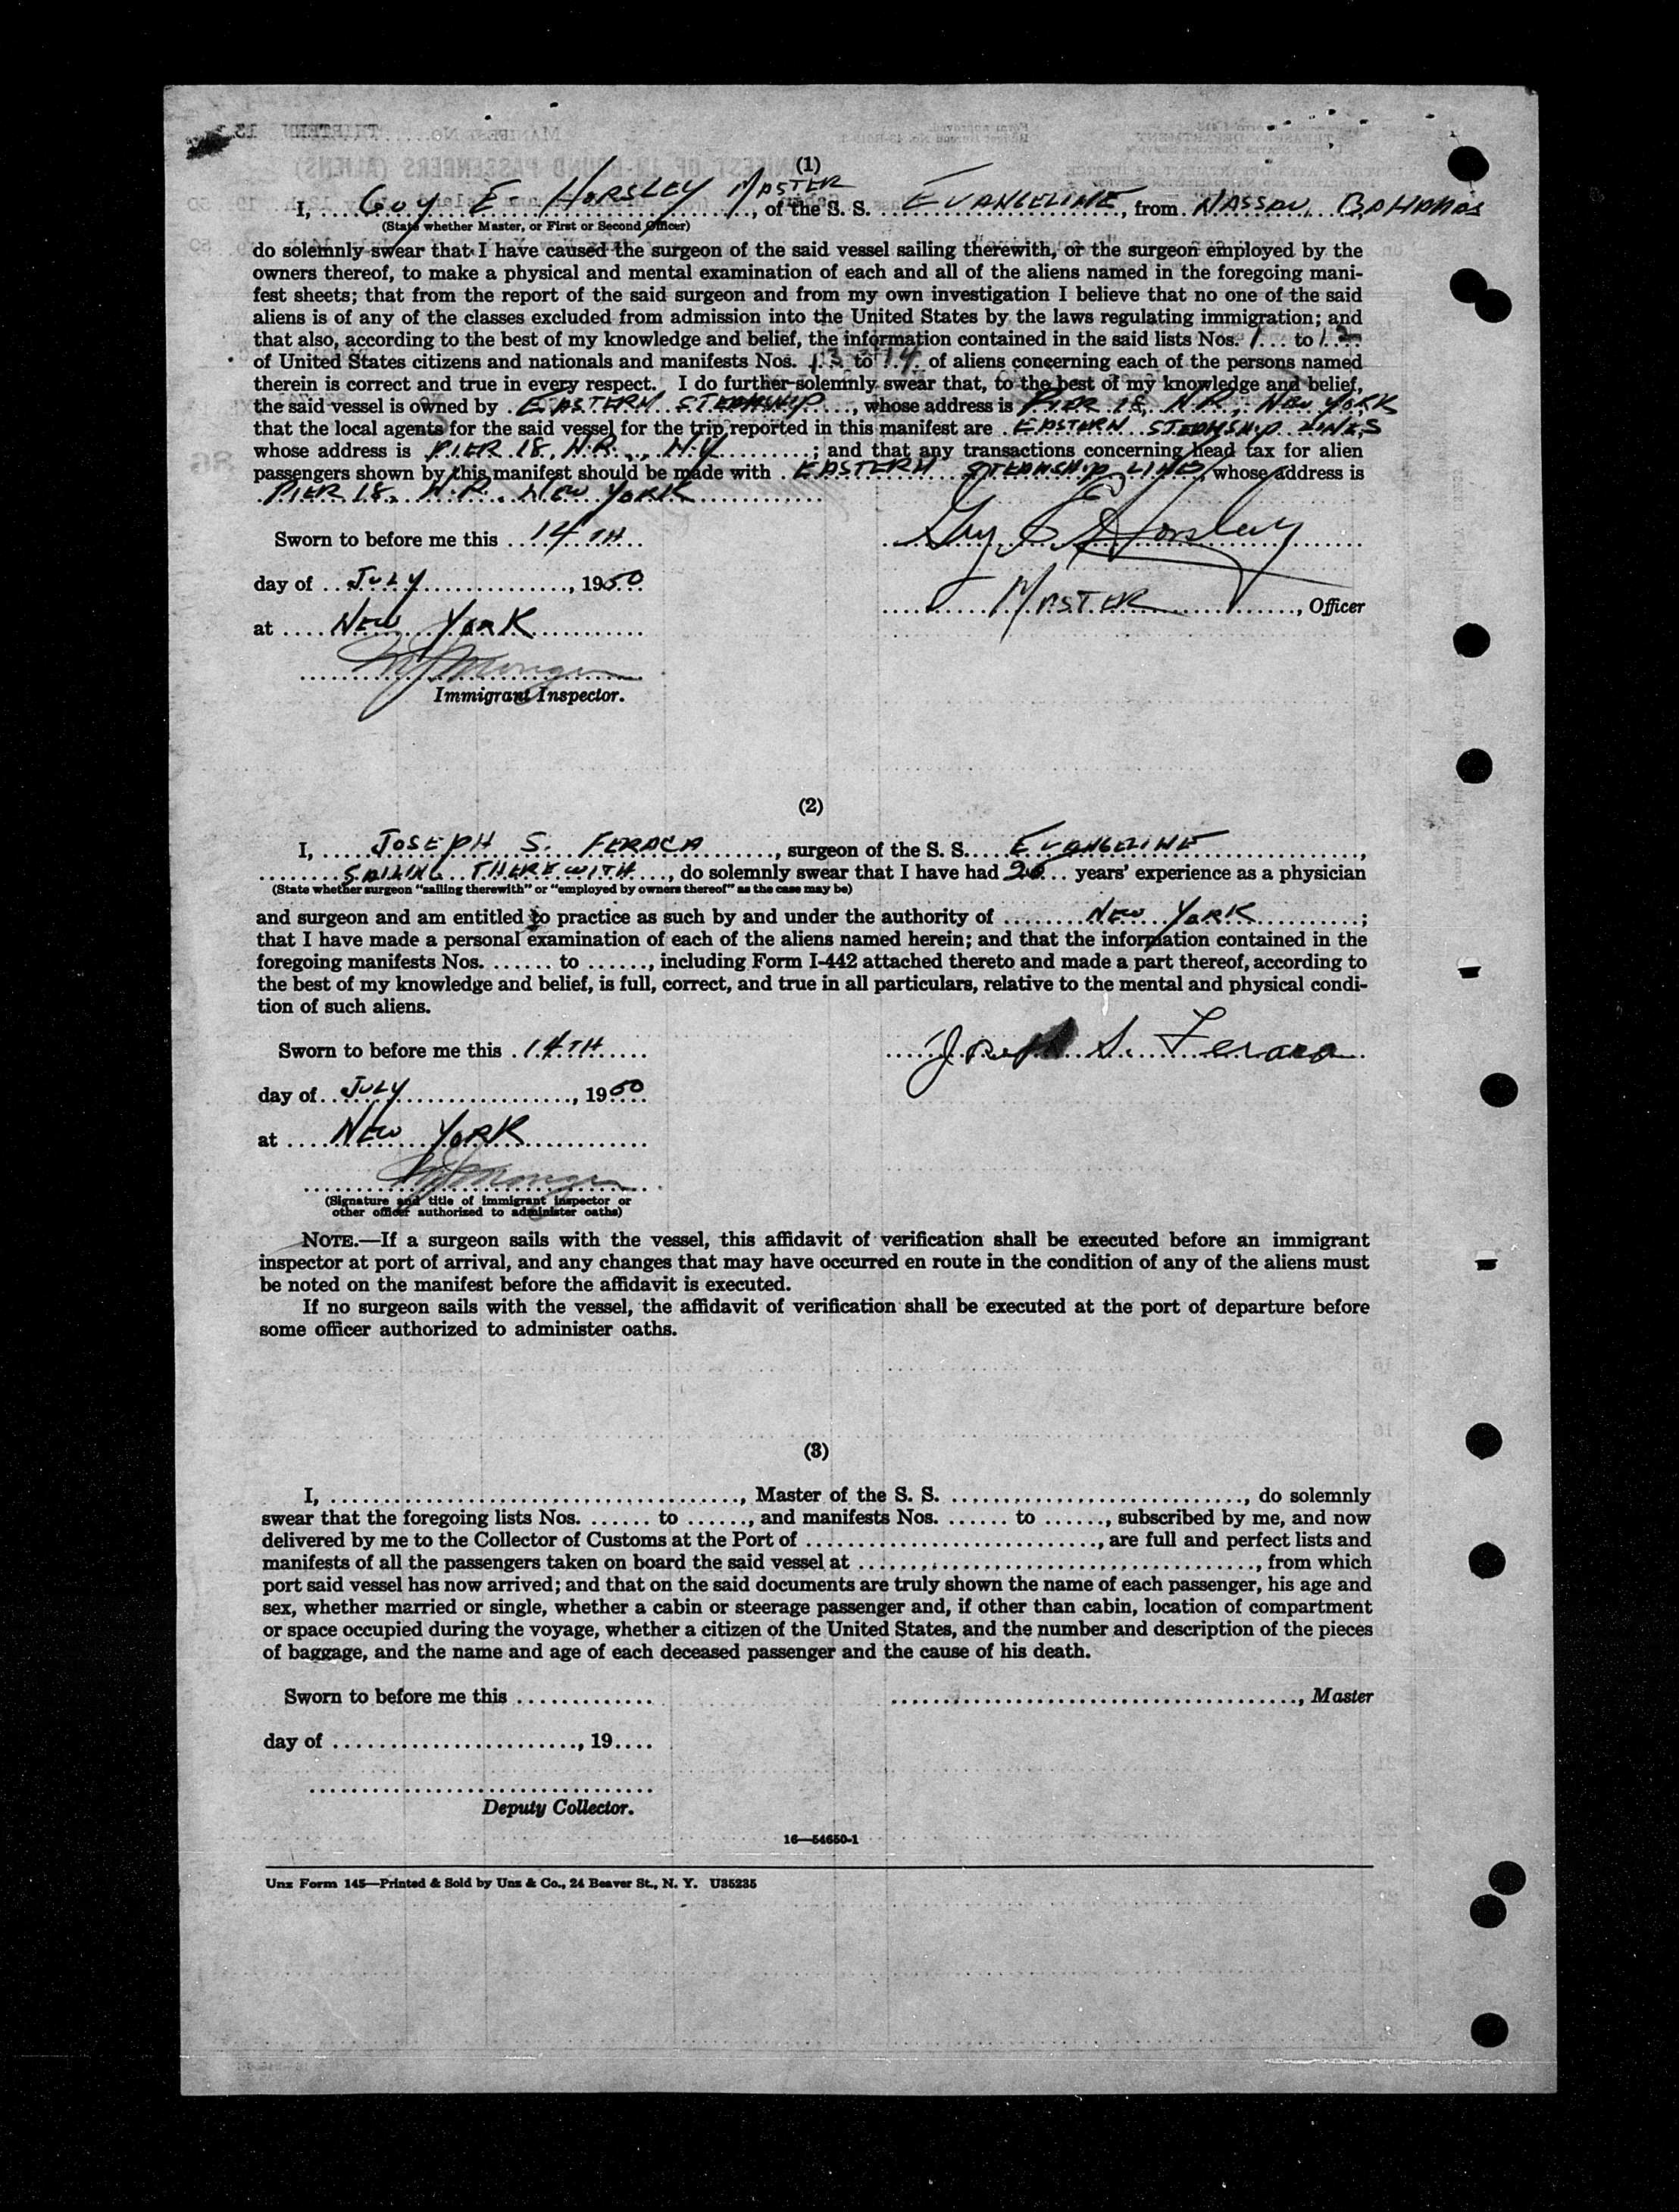 (1)
I, Guy E. Horsley Master, of the S. S. Evangeline, from Nassau, Bahamas
(State whether Master, or First or Second Officer)
do solemnly swear that I have caused the surgeon of the said vessel sailing therewith, or the surgeon employed by the
owners thereof, to make a physical and mental examination of each and all of the aliens named in the foregoing mani-
fest sheets; that from the report of the said surgeon and from my own investigation I believe that no one of the said
aliens is of any of the classes excluded from admission into the United States by the laws regulating immigration; and
that also, according to the best of my knowledge and belief, the information contained in the said lists Nos. 1 to 12
of United States citizens and nationals and manifests Nos. 13 to 14 of aliens concerning each of the persons named
therein is correct and true in every respect. I do further solemnly swear that, to the best of my knowledge and belief,
the said vessel is owned by Eastern Steamship, whose address is Pier 18, N.R., New York
that the local agents for the said vessel for the trip reported in this manifest are Eastern Steamship Lines
whose address is Pier 18, N.R., N.Y.; and that any transactions concerning head tax for alien
passengers shown by this manifest should be made with Eastern Steamship Lines, whose address is
Pier 18, N.R., New York
Sworn to before me this 14TH
Guy E Horsley
day of July, 1950
Master, Officer
at New York
Immigrant Inspector.
(2)
I, Joseph S. Feraca, surgeon of the S. S. Evangeline,
Sailing Therewith, do solemnly swear that I have had years' experience as a physician
(State whether surgeon "sailing therewith" or "employed by owners thereof" as the case may be)
and surgeon and am entitled to practice as such by and under the authority of New York;
that I have made a personal examination of each of the aliens named herein; and that the information contained in the
foregoing manifests Nos. ...... to ......, including Form I-442 attached thereto and made a part thereof, according to
the best of my knowledge and belief, is full, correct, and true in all particulars, relative to the mental and physical condi-
tion of such aliens.
Sworn to before me this 14TH
Joseph S. Feraca
day of July, 1950
at New York
(Signature and title of immigrant inspector or
other officer authorized to administer oaths)
NOTE.—If a surgeon sails with the vessel, this affidavit of verification shall be executed before an immigrant
inspector at port of arrival, and any changes that may have occurred en route in the condition of any of the aliens must
be noted on the manifest before the affidavit is executed.
If no surgeon sails with the vessel, the affidavit of verification shall be executed at the port of departure before
some officer authorized to administer oaths.
(3)
I, ......................................, Master of the S. S. ............................, do solemnly
swear that the foregoing lists Nos. ...... to ......, and manifests Nos. ...... to ......, subscribed by me, and now
delivered by me to the Collector of Customs at the Port of ............................, are full and perfect lists and
manifests of all the passengers taken on board the said vessel at ......................................, from which
port said vessel has now arrived; and that on the said documents are truly shown the name of each passenger, his age and
sex, whether married or single, whether a cabin or steerage passenger and, if other than cabin, location of compartment
or space occupied during the voyage, whether a citizen of the United States, and the number and description of the pieces
of baggage, and the name and age of each deceased passenger and the cause of his death.
Sworn to before me this .............
......................................, Master
day of ........................, 19....
Deputy Collector.
16—54650-1
Unz Form 145—Printed & Sold by Unz & Co., 24 Beaver St., N. Y. U35235